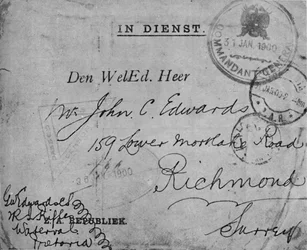 IN DIENST.
COMMANDANT GENERAAL
31 JAN. 1900
Den WelEd. Heer
Mr. John C. Edwards
159 Lower Mortlake Road
Richmond
Surrey
Z. A. REPUBLIEK.
Geo Edwards
Waterval
Pretoria